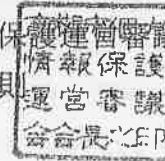 保護運営審
則
情報保護
運営審議
会会長之印